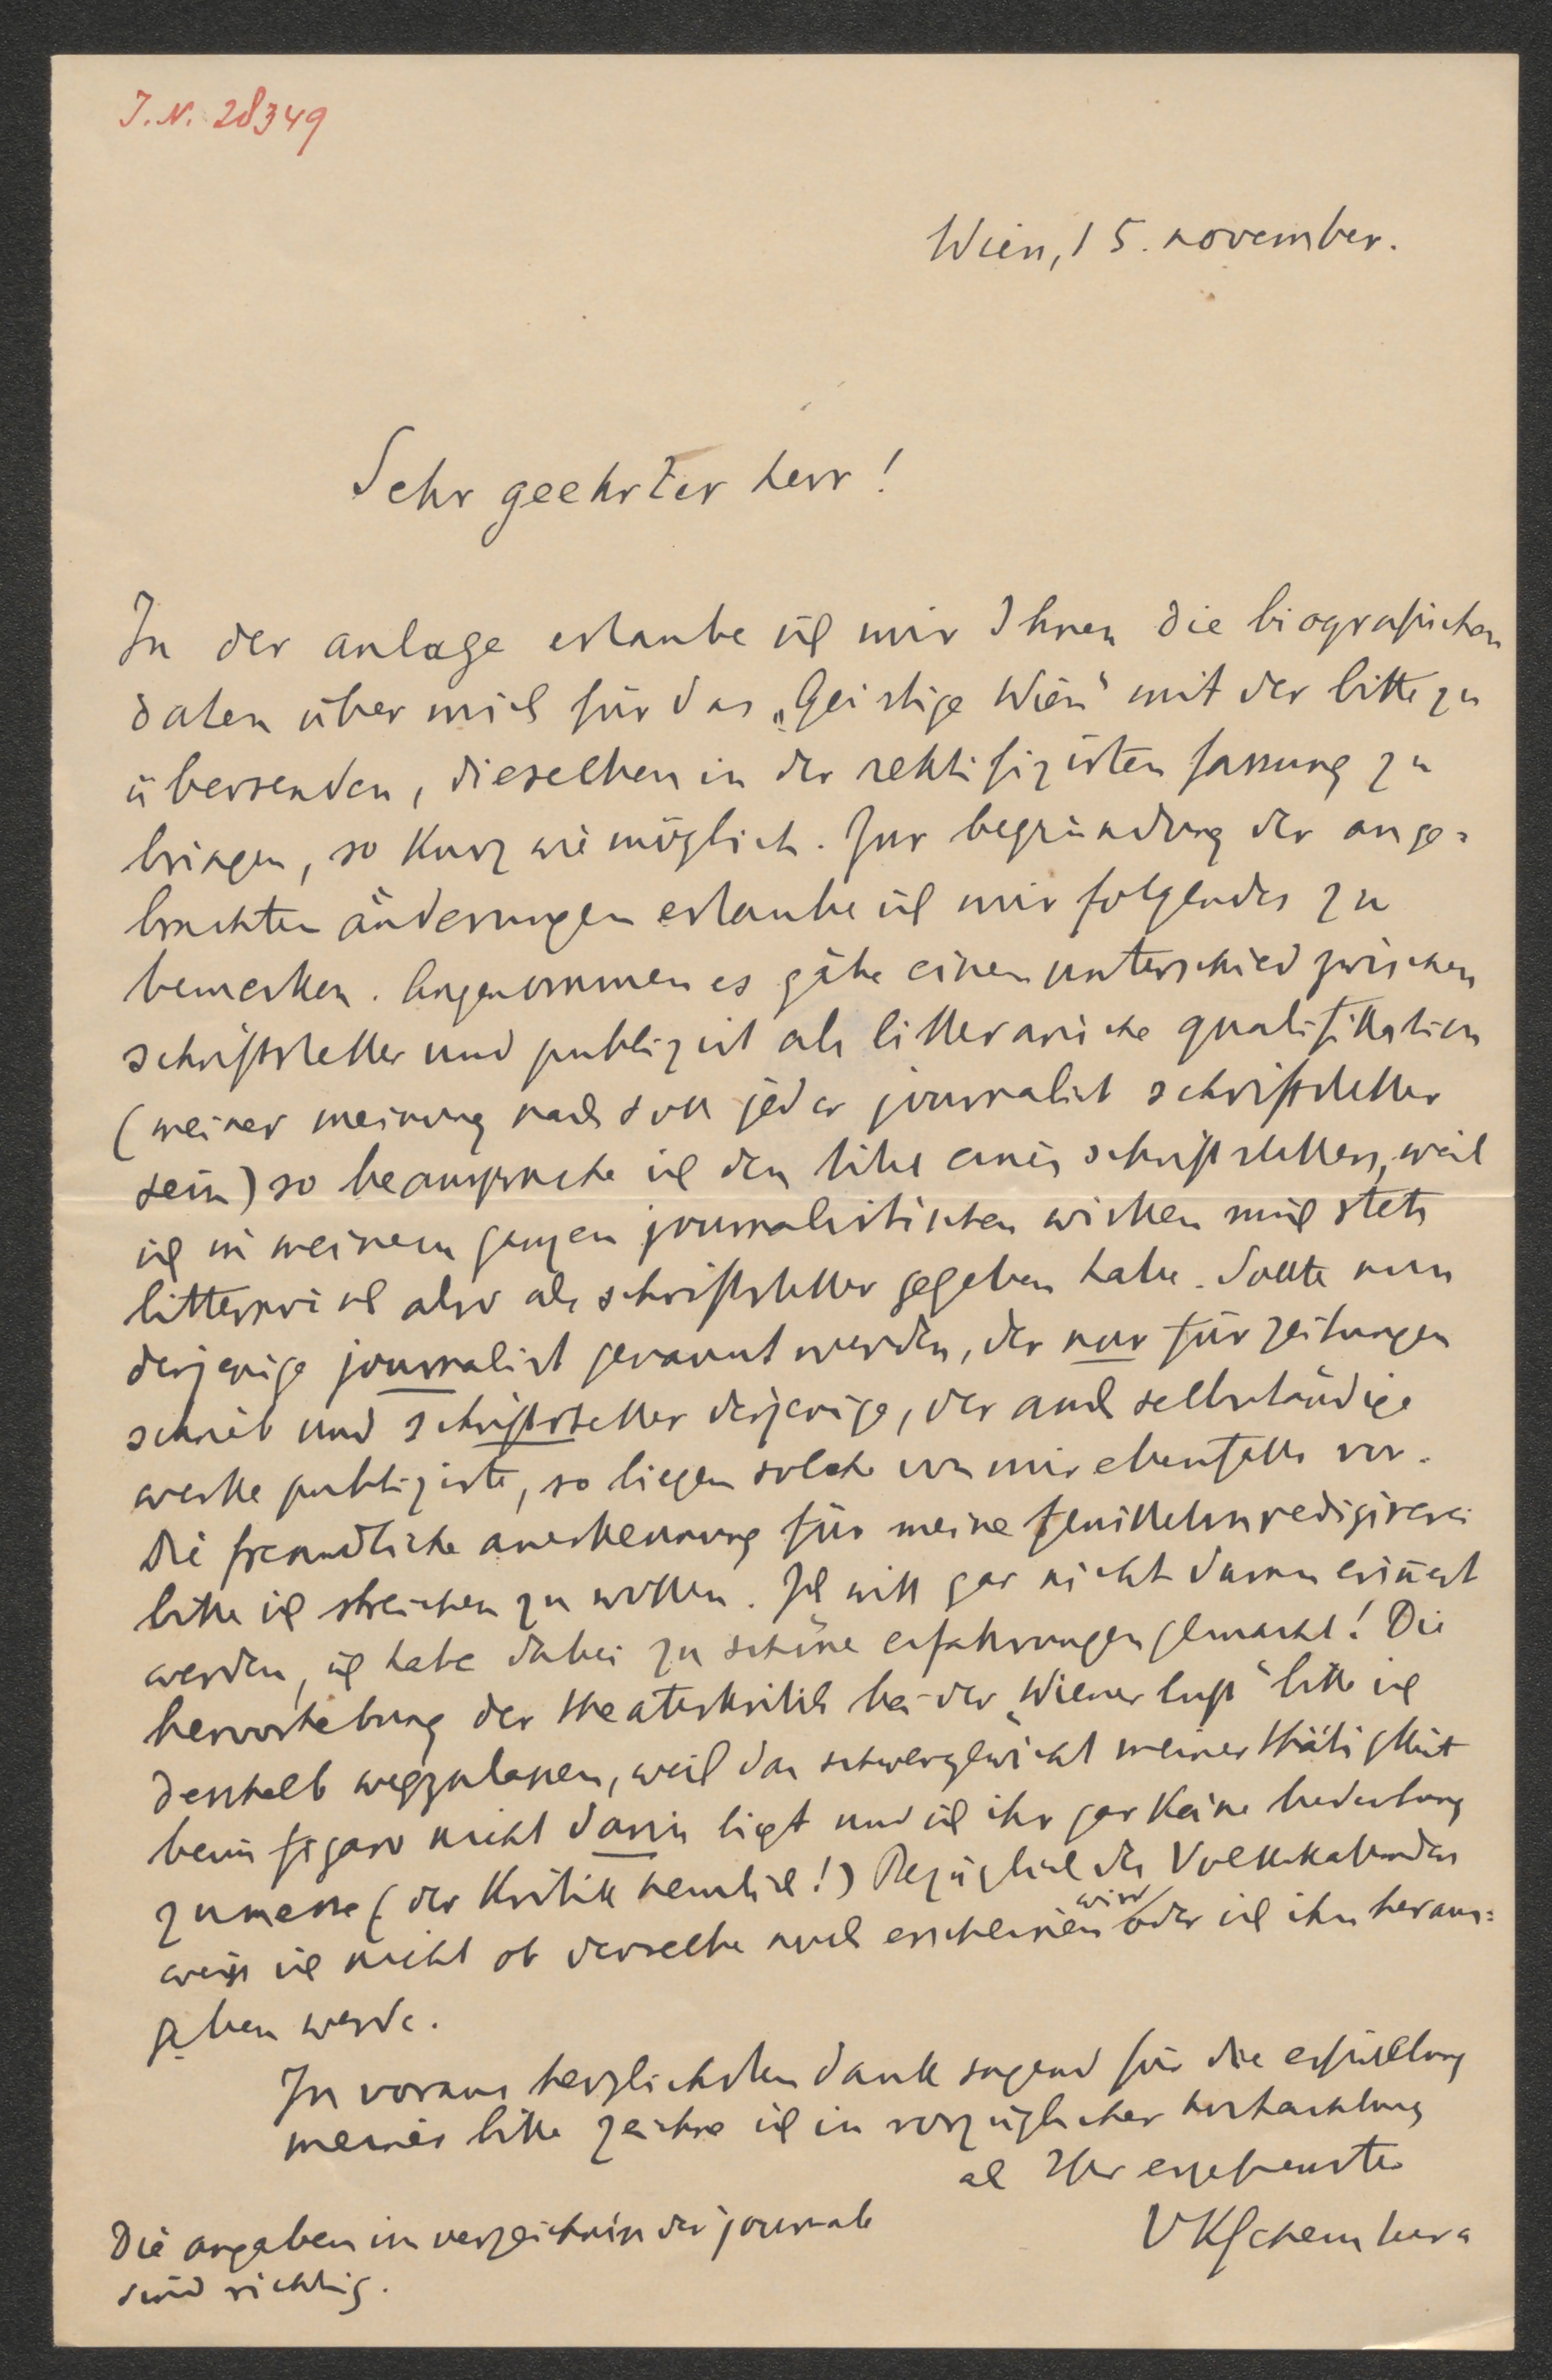 J. N. 28349
Wien, 15. november.
Sehr geehrter herr!
In der anlage erlaube ich mir Ihnen die biografischen
daten über mich für das „Geistige Wien“ mit der bitte zu
übersenden, dieselben in der rektifizirten fassung zu
bringen, so kurz wie möglich. Zur begründung der ange-
brachten änderungen erlaube ich mir folgendes zu
bemerken. Angenommen es gäbe einen unterschied zwischen
schriftsteller und publizist als litterarische qualifikation
(meiner meinung nach soll jeder journalist schriftsteller
sein) so beanspruche ich den titel eines schriftstellers, weil
ich in meinem ganzen journalistischen wirken mich stets
litterarisch also als schriftsteller gegeben habe. Sollte nun
derjenige journalist genannt werden, der nur für zeitungen
schrieb und schriftsteller derjenige, der auch selbständige
werke publizirte, so liegen solche von mir ebenfalls vor.
Die freundliche anerkennung für meine feuilletonredigirerei
bitte ich streichen zu wollen. Ich will gar nicht daran erinert
werden, ich habe dabei zu schöne erfahrungen gemacht! Die
hervorhebung der theaterkritik bei der „Wiener luft“ bitte ich
desshalb wegzulassen, weil das schwergewicht meiner thätigkeit
beim figaro nicht darin liegt und ich ihr gar keine bedeutung
zumesse (der kritik nemlich!) Bezüglich des Volkskalenders
weiss ich nicht ob derselbe noch erscheinen wird oder ich ihn heraus-
geben werde.
Im voraus herzlichsten dank sagend für die erfüllung
meiner bitte zeichne ich in vorzüglicher hochachtung
als Ihr ergebenster
VKSchembera
Die angaben im verzeichniss der journale
sind richtig.